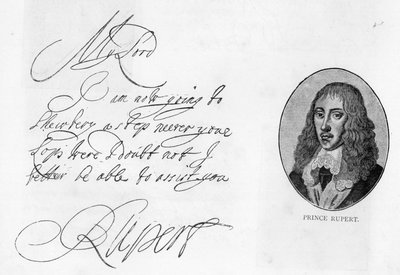 My Lord
I am now going to
a step nerer youe
Lops were I doubt not I
better be able to assist you
Rupert
PRINCE RUPERT.